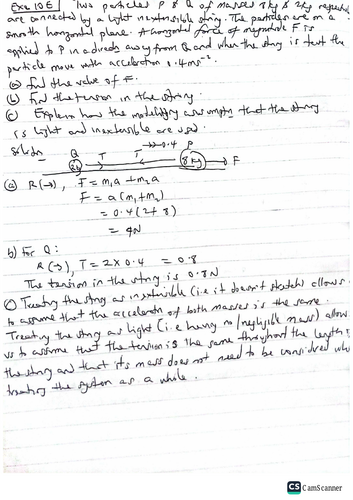 Exe 10E Two particles P & Q of masses 8kg & 2kg
are connected by a light inextensible string. The particles are on a
smooth horizontal plane. A horizontal force of magnitude F is
applied to P in a direct away from Q and when the string is taut the
particle move with acceleration 0.4ms⁻².
(a) find the value of F.
(b) Find the tension in the string.
(c) Explain how the modelling assumptn that the string
is light and inextensible are used.
Soln
→→ 0.4
Q T T P
2kg 8kg → F
(a) R(→), F = m₁a + m₂a
F = a(m₁+m₂)
= 0.4(2+8)
= 4N
b) For Q:
R(→), T = 2 × 0.4 = 0.8
The tension in the string is 0.8N
(c) Treating the string as inextensible (i.e it doesn't stretch) allows
to assume that the acceleratn of both masses is the same.
Treating the string as light (i.e having no/negligible mass) allow
us to assume that the tension is the same throughout the length
the string and that its mass does not need to be considered
treating the system as a whole.
CS CamScanner